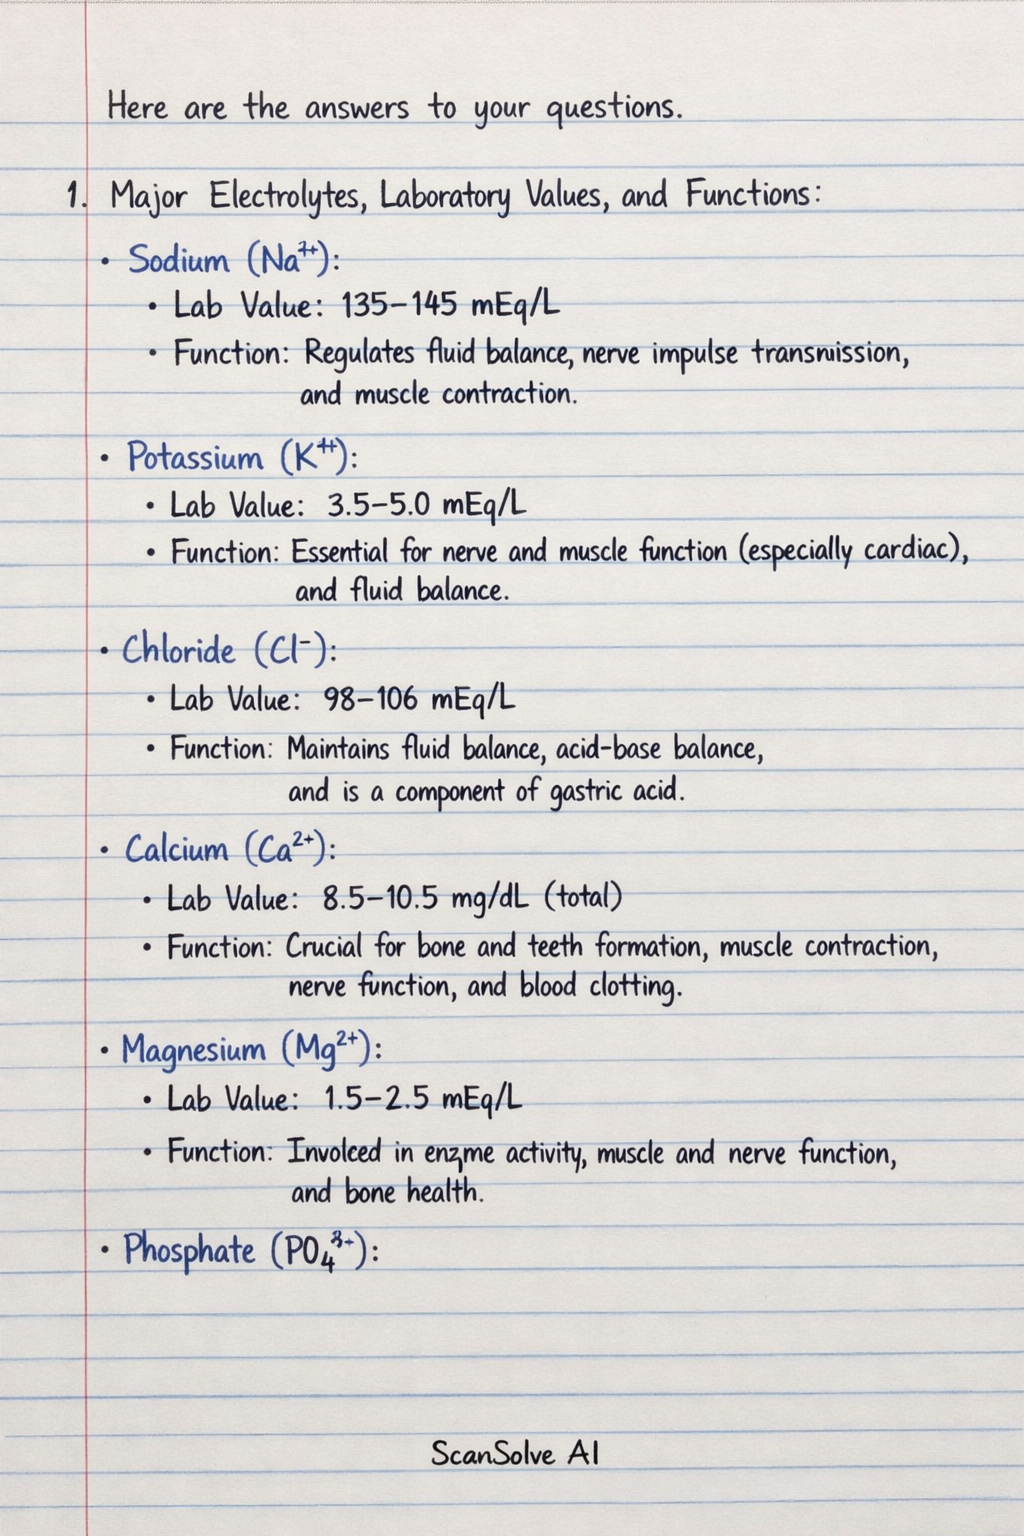 Here are the answers to your questions.
1. Major Electrolytes, Laboratory Values, and Functions:
• Sodium (Na²⁺):
• Lab Value: 135–145 mEq/L
• Function: Regulates fluid balance, nerve impulse transmission,
and muscle contraction.
• Potassium (K⁺⁺):
• Lab Value: 3.5–5.0 mEq/L
• Function: Essential for nerve and muscle function (especially cardiac),
and fluid balance.
• Chloride (Cl⁻):
• Lab Value: 98–106 mEq/L
• Function: Maintains fluid balance, acid-base balance,
and is a component of gastric acid.
• Calcium (Ca²⁺):
• Lab Value: 8.5–10.5 mg/dL (total)
• Function: Crucial for bone and teeth formation, muscle contraction,
nerve function, and blood clotting.
• Magnesium (Mg²⁺):
• Lab Value: 1.5–2.5 mEq/L
• Function: Involced in enzme activity, muscle and nerve function,
and bone health.
• Phosphate (PO₄³⁺):
ScanSolve AI